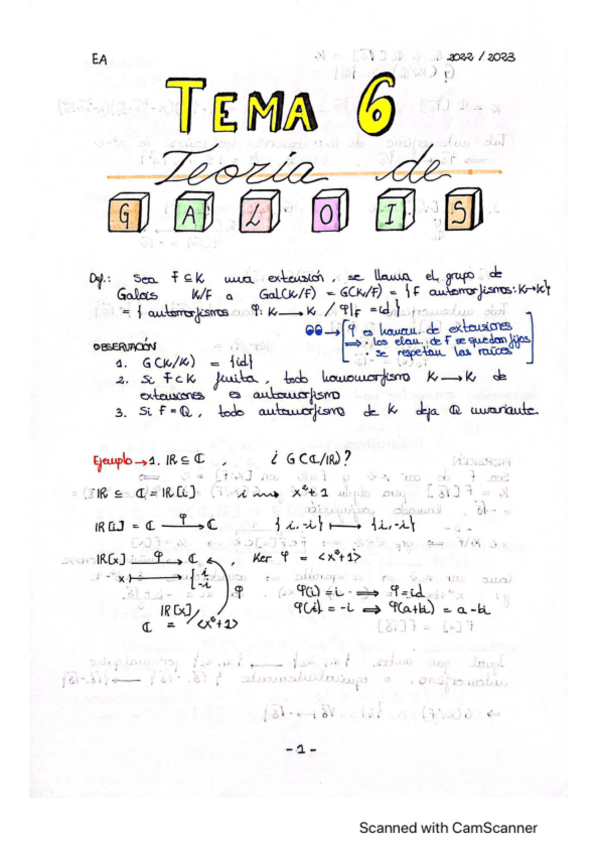 EA 2022 / 2023
TEMA 6
Teoría de
GALOIS
Def.: Sea F ⊆ K una extensión, se llama el grupo de
Galois K/F a Gal(K/F) = G(K/F) = { F automorfismos: K→K}
= { automorfismos φ: K → K / φ|F = id }
→ [ φ es homom. de extensiones
⟹ · los elem. de F se quedan fijos
· se respetan las raíces ]
OBSERVACIÓN
1. G(K/K) = {id}
2. Si F ⊂ K finita, todo homomorfismo K → K de
extensiones es automorfismo
3. Si F = Q, todo automorfismo de K deja Q invariante.
Ejemplo → 1. IR ⊆ ℂ, ¿ G(ℂ/IR)?
IR ⊆ ℂ = IR[i] i ⟿ x²+1
IR[i] = ℂ →φ ℂ { i, -i} ⟼ {i, -i}
IR[x] →φ ℂ, Ker φ = <x²+1>
x ⟼ { i -i
φ(i) = i ⟹ φ = id
IR[x]/<x²+1>
φ(i) = -i ⟹ φ(a+bi) = a - bi
ℂ =
- 1 -
Scanned with CamScanner